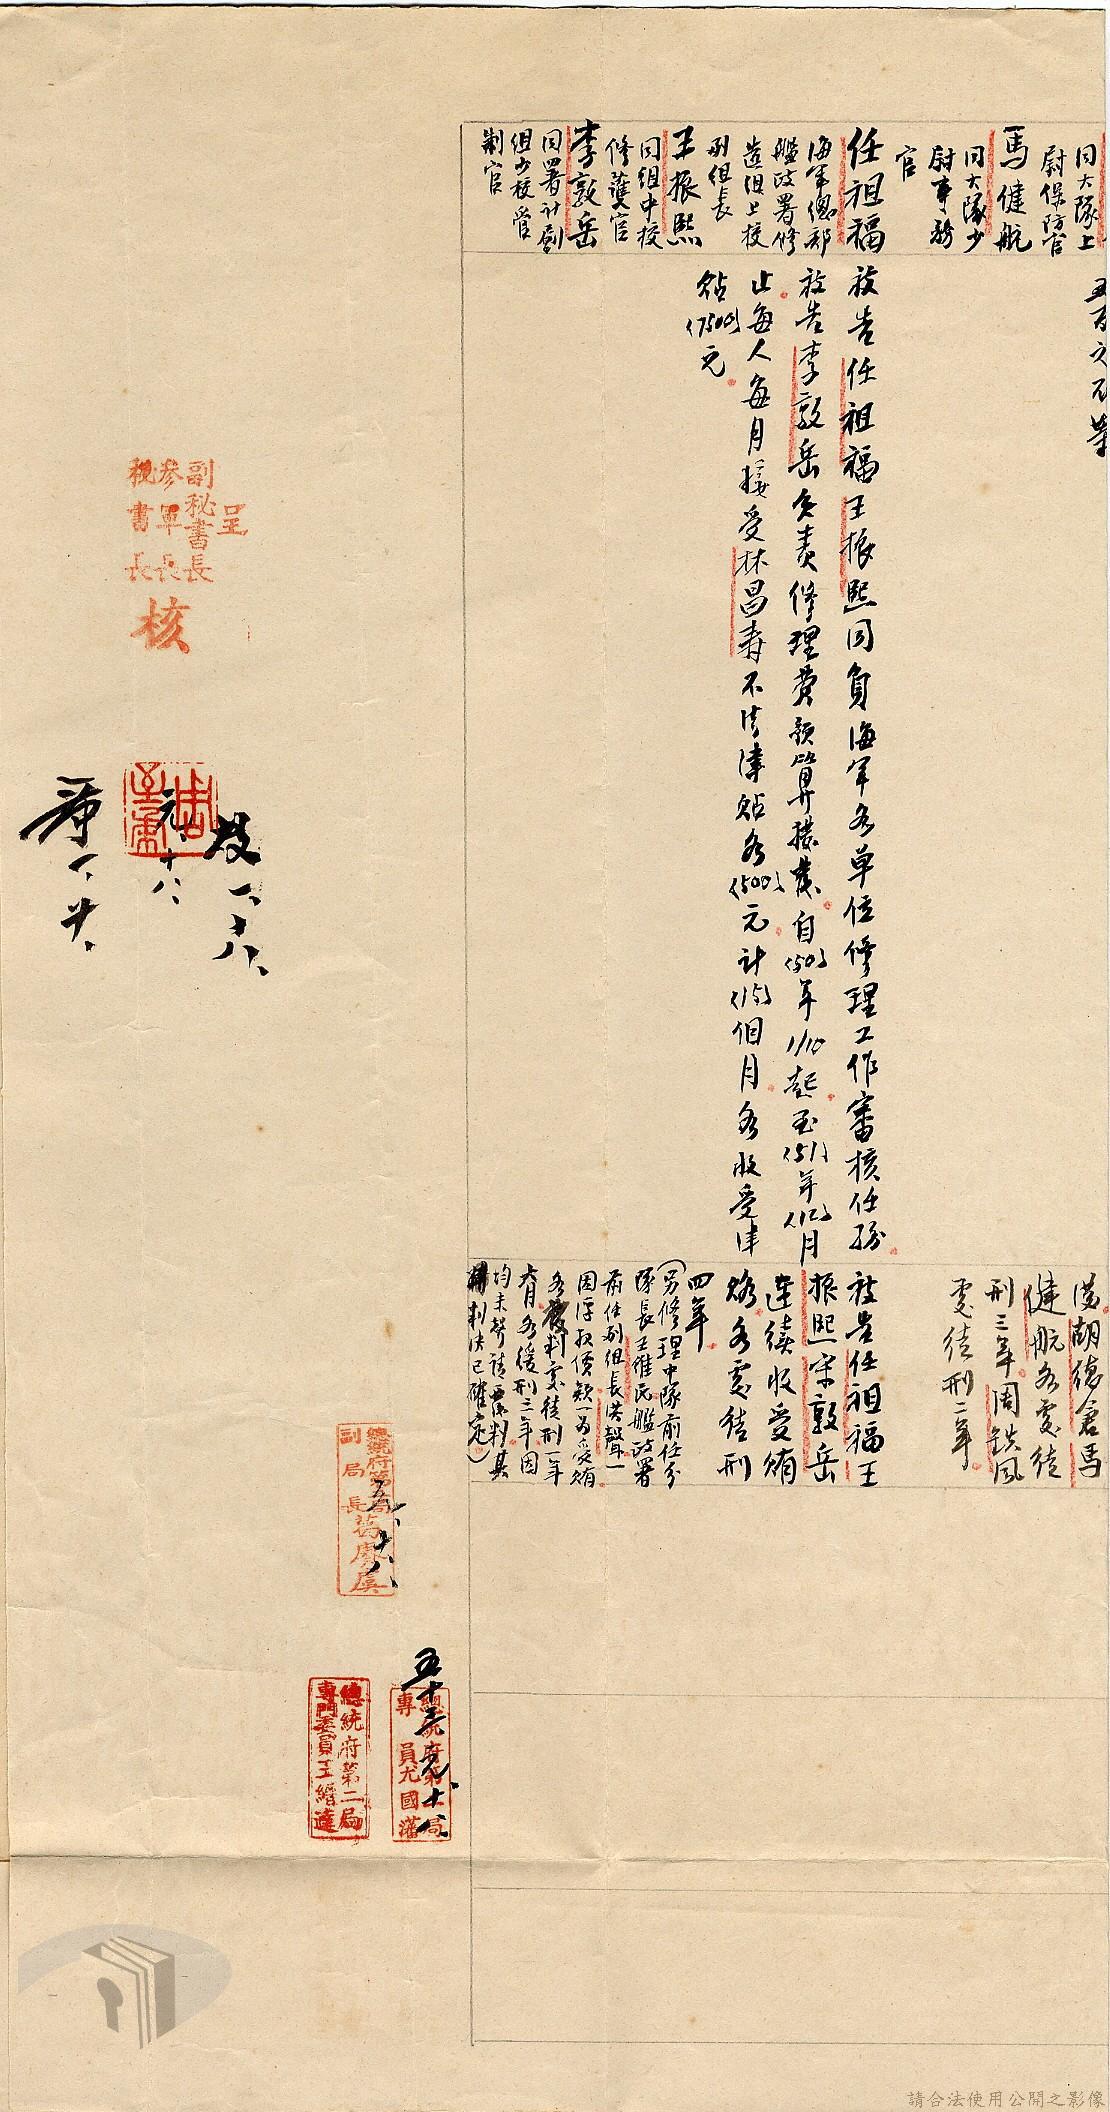 同大隊上
尉保防官
馬健航
同大隊少
尉事務
官
任祖福
海軍總部
艦政署修
造組上校
副組長
王振熙
同組中校
修護官
李敦岳
同署計劃
組少校管
制官
五百元不等
被告任祖福王振熙同負海軍各單位修理工作審核任務
被告李敦岳負責修理費預算攤支自(50)年1/10起至(51)年(12)月
止每人每月接受林昌壽不法津貼各(500)元計(15)個月各收受津
貼(7500)元
胡德倉馬
健航各處徒
刑三年周鉄風
處徒刑二年
被告任祖福王
振熙宋敦岳
連續收受賄
賂各處徒刑
四年
(另修理中隊前任分
隊長王維民艦政署
前任副組長洪聲一
因浮報價款一為受賄
各判處徒刑一年
六月各緩刑三年因
均未聲請覆判其
判決已確定)
呈
副秘書長
參軍長
秘書長
核
一、十八、
元、十八、
一、廿、
總統府第二局
副局長
總統府第二局
專員尤國藩
總統府第二局
專門委員王縉達
請合法使用公開之影像